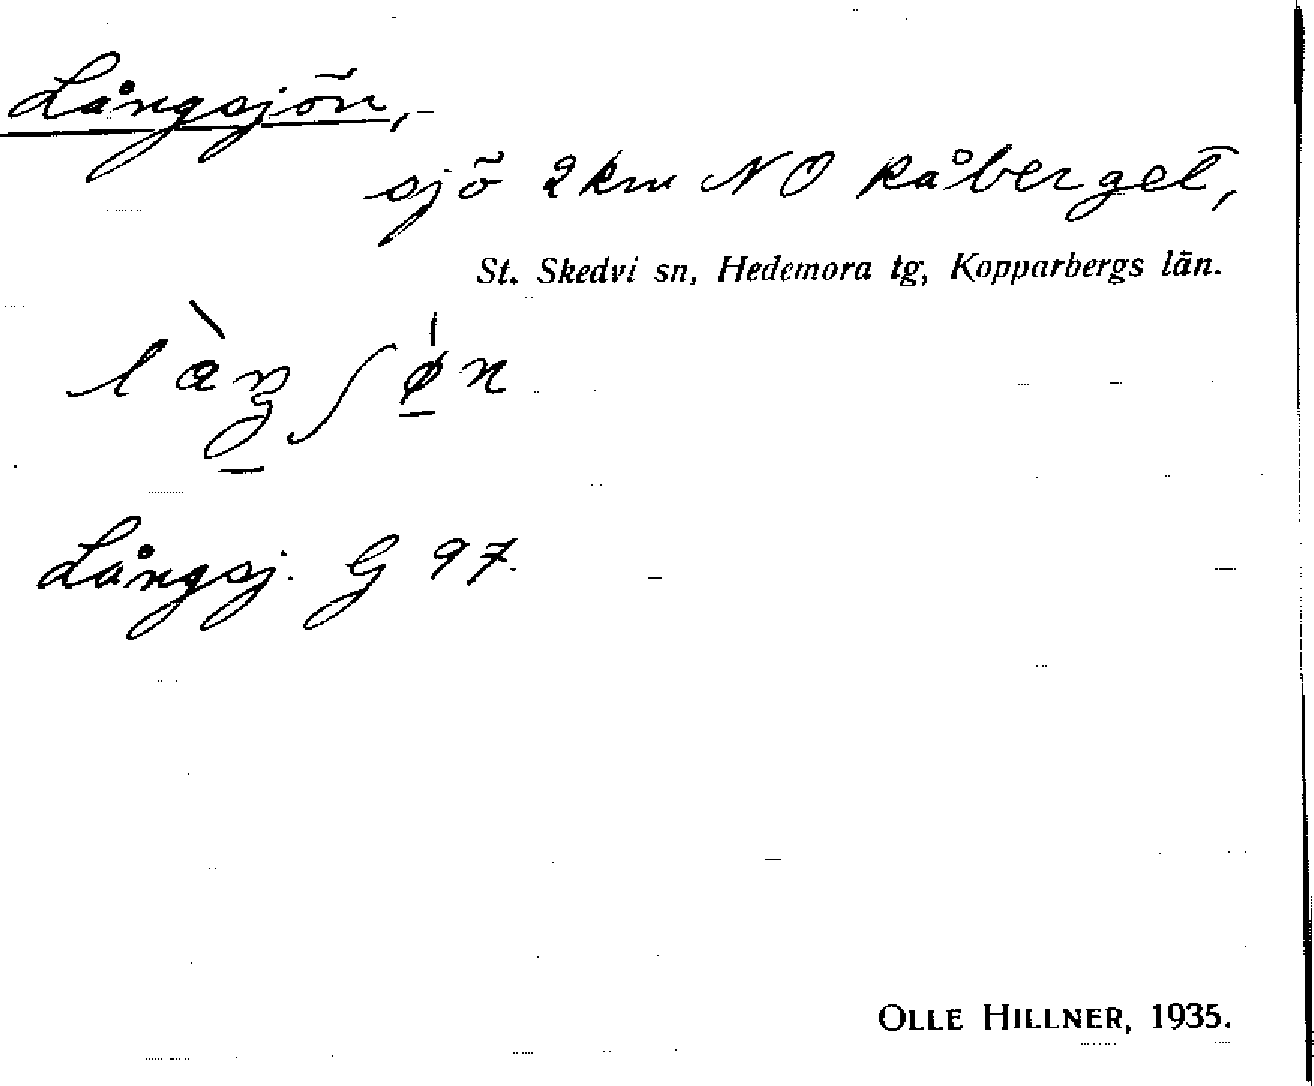 Långsjön,
sjö 2 km NO Råberget,
St. Skedvi sn, Hedemora tg, Kopparbergs län.
Långsj. G 97.
OLLE HILLNER, 1935.